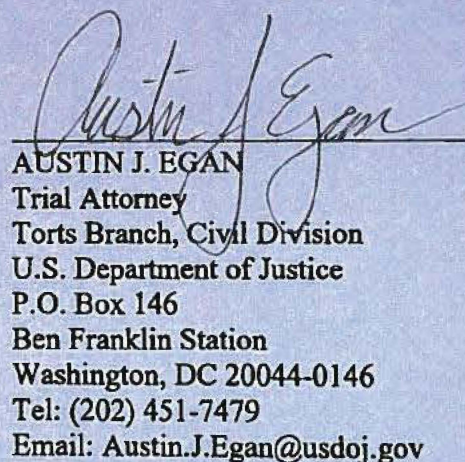 Austin J Egan
AUSTIN J. EGAN
Trial Attorney
Torts Branch, Civil Division
U.S. Department of Justice
P.O. Box 146
Ben Franklin Station
Washington, DC 20044-0146
Tel: (202) 451-7479
Email: Austin.J.Egan@usdoj.gov